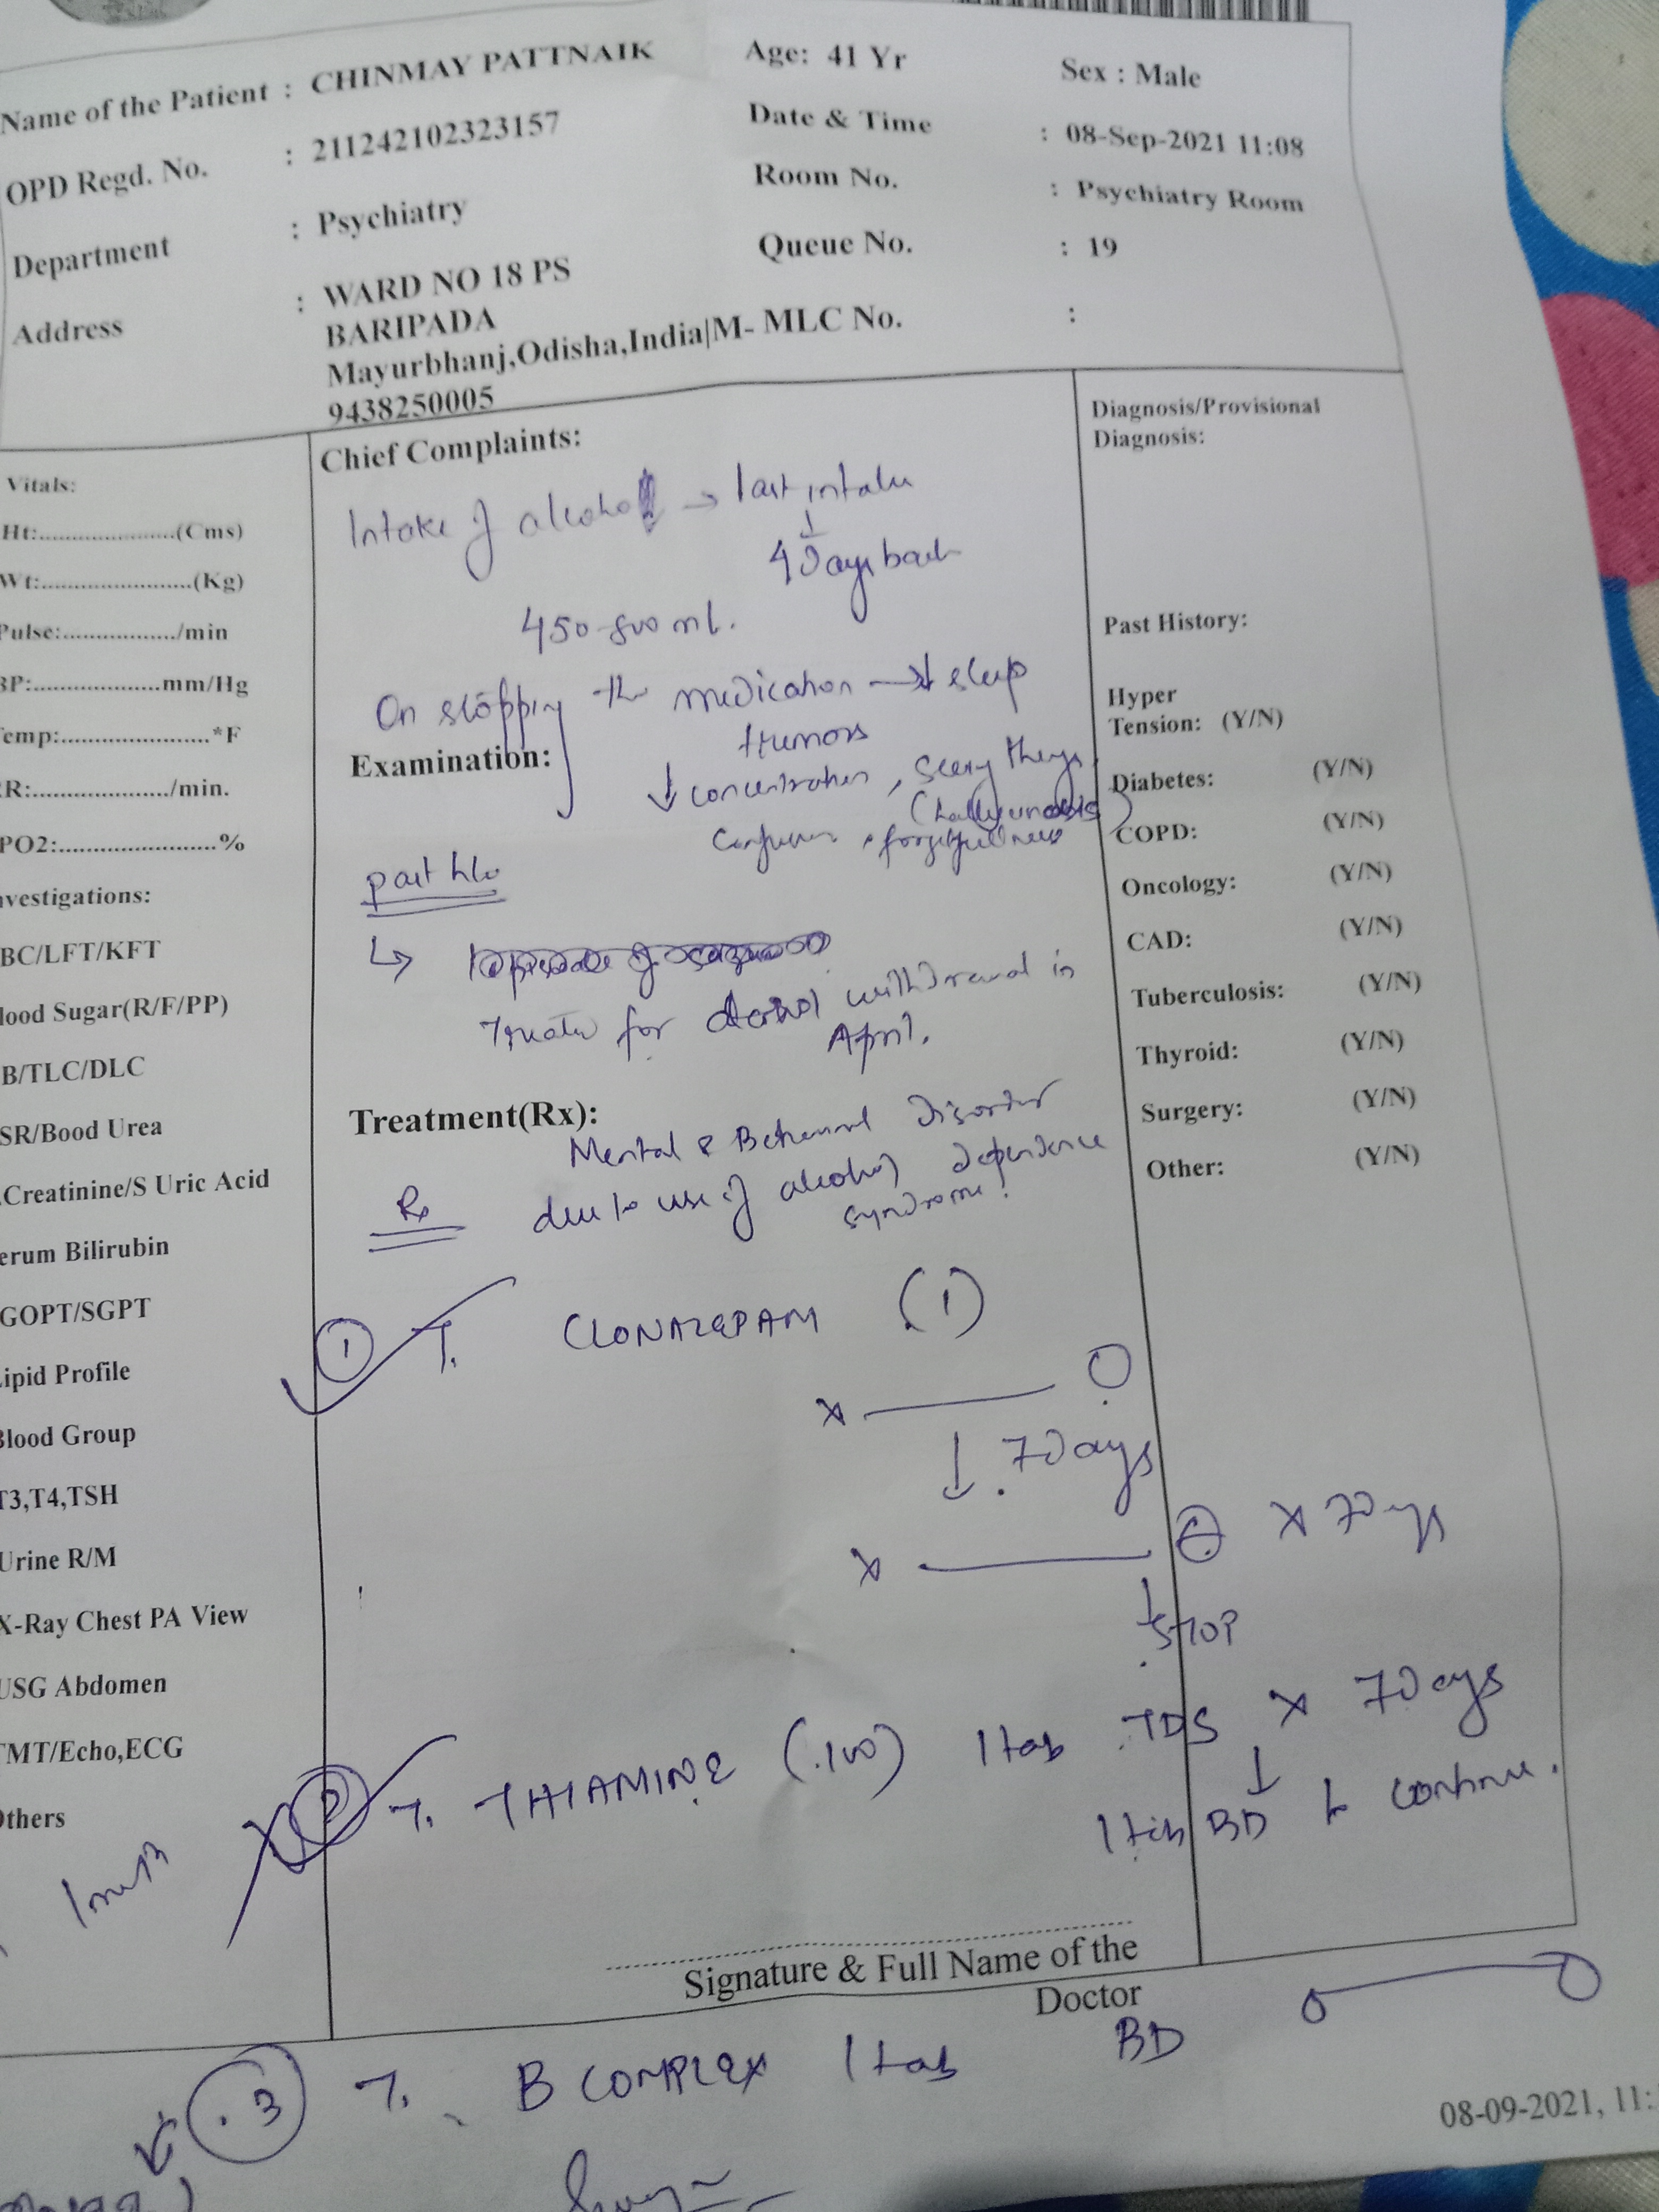 Name of the Patient : CHINMAY PATTNAIK Age: 41 Yr Sex : Male
OPD Regd. No. : 211242102323157 Date & Time : 08-Sep-2021 11:08
Department : Psychiatry Room No. : Psychiatry Room
Address : WARD NO 18 PS Queue No. : 19
BARIPADA
Mayurbhanj,Odisha,India|M- MLC No. :
9438250005
Vitals:
Ht:......................(Cms)
Wt:........................(Kg)
Pulse:................../min
BP:....................mm/Hg
emp:.......................*F
R:...................../min.
PO2:........................%
nvestigations:
BC/LFT/KFT
lood Sugar(R/F/PP)
B/TLC/DLC
SR/Bood Urea
.Creatinine/S Uric Acid
erum Bilirubin
GOPT/SGPT
Lipid Profile
Blood Group
T3,T4,TSH
Urine R/M
X-Ray Chest PA View
USG Abdomen
TMT/Echo,ECG
Others
Chief Complaints:
Intake of alcohol → last intake
↓
4 Days back
450-800 ml.
On stopping the medication → ↓ sleep
tremors
Examination:
↓ concentration, seeing things
confusion, forgetfullness
past h/o
↳
Treated for alcohol withdrawal in
April.
Treatment(Rx):
Mental & Behavioral Disorder
Rx due to use of alcohol, dependence
syndrome.
① T. CLONAZEPAM (1)
x —
↓ 7 Days
x — x 7 Days
↓
STOP
② T. THIAMINE (100) 1 tab TDS x 7 Days
↓
1 tab BD to continue.
Signature & Full Name of the
Doctor
③ T. B COMPLEX 1 tab BD
08-09-2021, 11:
Diagnosis/Provisional
Diagnosis:
Past History:
Hyper
Tension: (Y/N)
Diabetes: (Y/N)
COPD: (Y/N)
Oncology: (Y/N)
CAD: (Y/N)
Tuberculosis: (Y/N)
Thyroid: (Y/N)
Surgery: (Y/N)
Other: (Y/N)